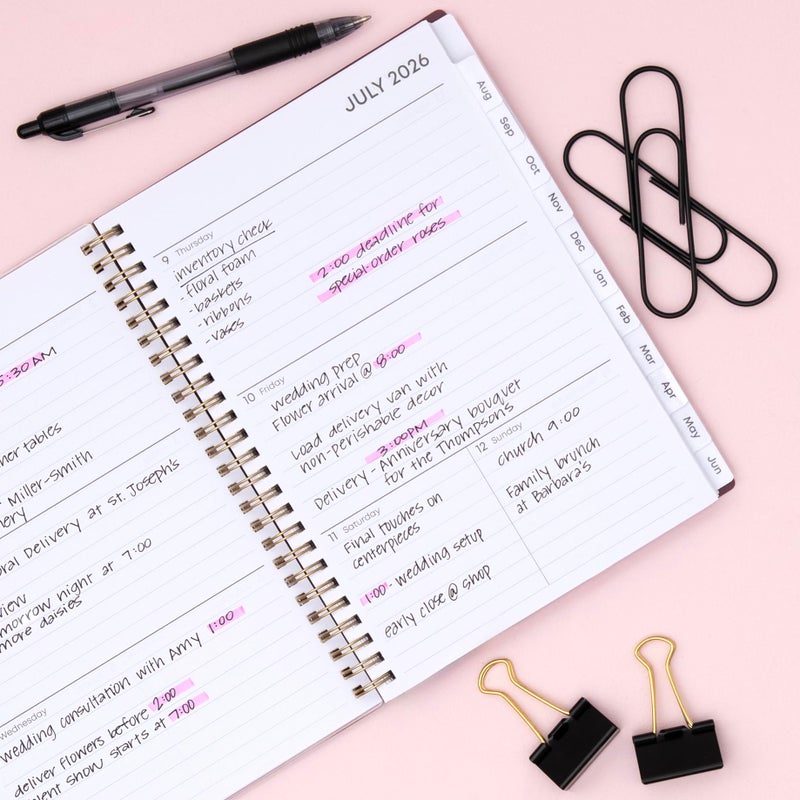 5:30 AM
tables
- Miller-Smith
Delivery at St. Joseph's
night at 7:00
more daisies
Wednesday
wedding consultation with Amy 1:00
deliver flowers before 2:00
show starts at 7:00
JULY 2026
9 Thursday
inventory check
-floral foam
-baskets
-ribbons
-vases
2:00 deadline for
special-order roses
10 Friday
wedding prep
Flower arrival @ 8:00
Load delivery van with
non-perishable decor
3:00PM
Delivery - Anniversary bouquet
for the Thompson's
11 Saturday
Final touches on
centerpieces
1:00 - wedding setup
early close @ shop
12 Sunday
church 9:00
Family brunch
at Barbara's
Aug
Sep
Oct
Nov
Dec
Jan
Feb
Mar
Apr
May
Jun